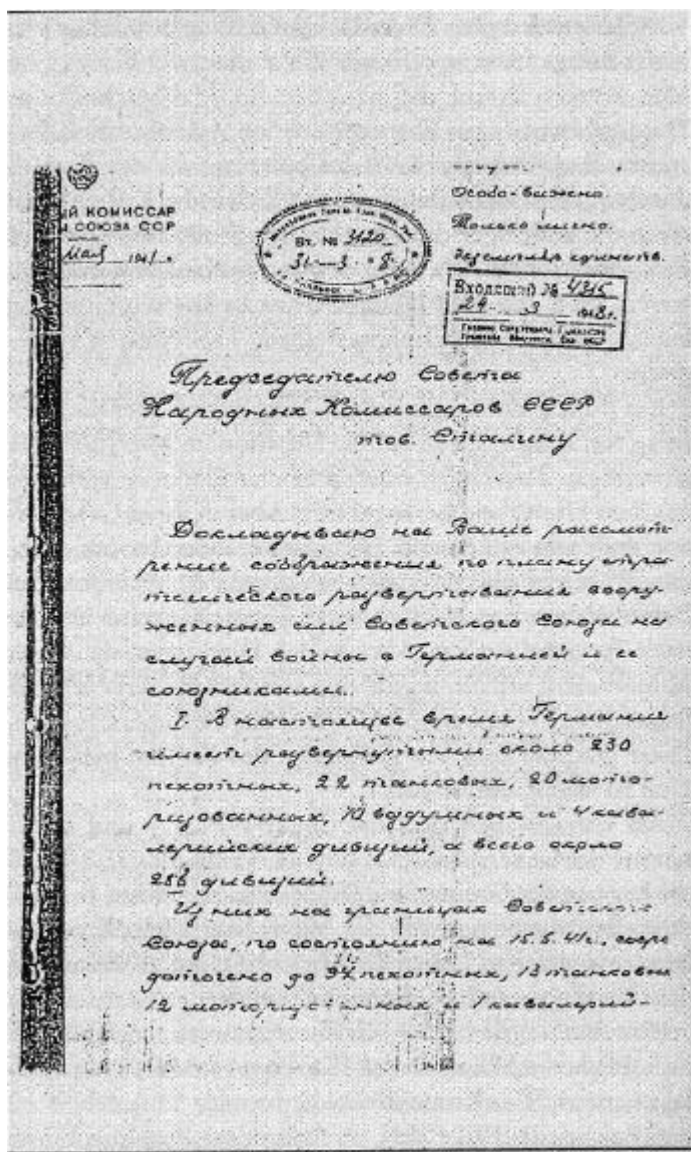 ЫЙ КОМИССАР
Ы СОЮЗА ССР
мая 194 г.
Вх. № 3120
31 3 8
Особо важно.
Только лично.
экземпляр единств.
Входящий № 4315
29 3 1948 г.
Председателю Совета
Народных Комиссаров СССР
тов. Сталину
Докладываю на Ваше рассмот
рение соображения по плану стра
тегического развертывания воору-
женных сил Советского Союза на
случай войны с Германией и ее
союзниками.
I. В настоящее время Германия
имеет развернутыми около 230
пехотных, 22 танковых, 20 мото-
ризованных, 10 воздушных и 4 кава-
лерийских дивизий, а всего около
286 дивизий.
Из них на границах Советского
Союза, по состоянию на 15.5.41г., сосре
доточено до 94 пехотных, 13 танковых
12 моторизованных и 1 кавалерий-